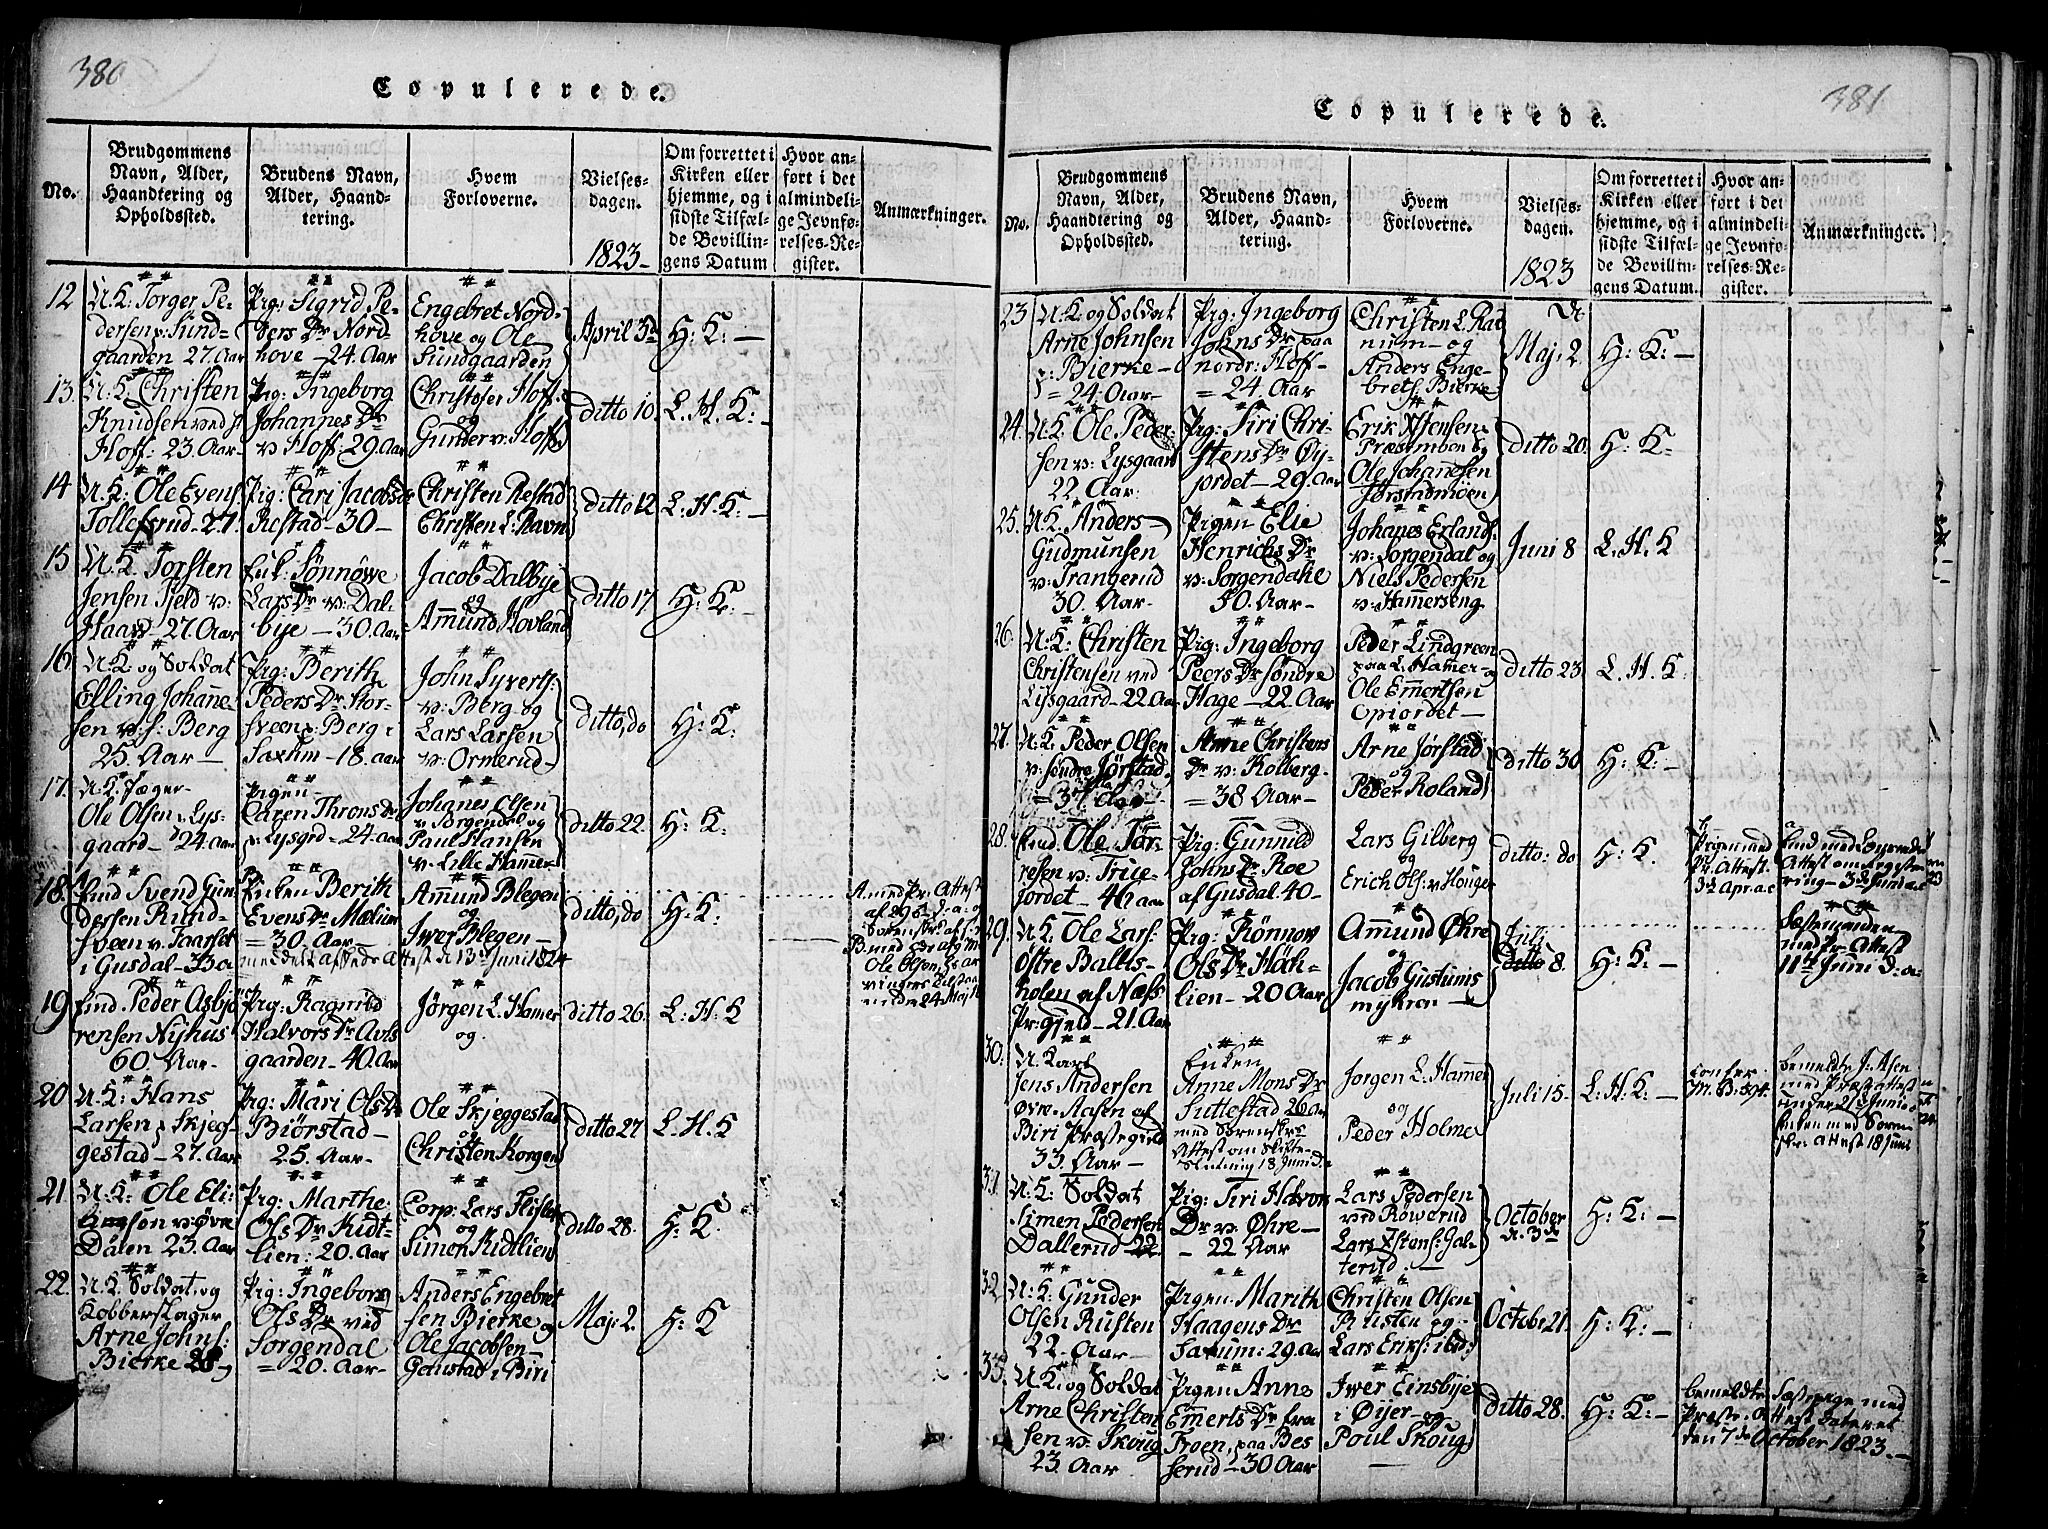 380
Copulerede.
No.
Brudgommens
Navn, Alder,
Haandtering og
Opholdssted.
Brudens Navn,
Alder, Haand-
tering.
Hvem
Forloverne.
Vielses-
dagen.
1823-
Om forrettet i
Kirken eller
hjemme, og i
sidste Tilfæl-
de Bevillin-
gens Datum
Hvor an-
ført i det
almindeli-
ge Jevnfø-
relses-Re-
gister.
Anmærkninger.
12
U.K: Torger Pe-
dersen v: Sund-
gaarden 27. Aar
Pig: Sigrid Pe-
ders Dr Nord-
hove - 24. Aar
Engebret Nord-
hove og Ole
Sundgaarden
April 3de
H: K: -
13.
U.K. Christen
Knudsen ved
Hoff: 23. Aar-
Pig: Ingeborg
Johannes Dr
v: Hoff: 29. Aar
Christofer Hoff
og
Gunder v: Hoff
ditto 10.
L. H. K: -
14
U. K: Ole Evens:
Tollefsrud - 27.
Pig: Cari Jacobs Dr
Restad - 30 -
Christen Restad
Christen L: Ravn
ditto 12
L. H. K: -
15
U. K. Torsten
Jensen Fjeld v:
Haard - 27. Aar
Enk: Sønnøwe
Lars Dr v: Dal-
bye - 30. Aar
Jacob Dalbye
og
Amund Hovland
ditto 17
H: K: -
16.
U. K. og Soldat
Elling Johanne-
sen v: s: Berg
25. Aar -
Pig: Berith
Peders Dr Stor-
sveen p: Berg i
Saxum - 18. aar
John Syverts:
v: Berg og
Lars Larsen
v: Ormerud -
ditto, do
H: K:
17.
U. K. Jæger-
Ole Olsen v. Lys-
gaard - 24. aar
Pigen -
Caren Throns Dr
v: Lysgrd - 24. aar
Johanes Olsen
v: Sorgendal og
Paul Hansen
v: Lille Hamer-
ditto 22.
H: K:
18.
Enkd Svend Gun-
dersen Rund-
sveen v: Taarstet
i Gusdal - 33 a
Enken Berith
Evens Dr Mælum
= 30. Aar
Amund Blegen
og
Iwer Blegen -
ditto, do
H: K:
19
Enk. Peder Asbjø-
rensen Nyhus
60 Aar -
Pig: Ragnild
Halvors Dr Avls
gaarden - 40. Aar
Jørgen L. Hamer
og.
ditto 26.
L: H: K
20
U. K: Hans
Larsen p Skjeg-
gestad - 27. Aar
Pig: Mari Ols Dr
Biørstad -
25. Aar -
Ole Skjeggestad
og
Christen Korgen
ditto 27
L. H. K
21.
U: K: Ole Eli-
v: Øvre
Dalen 23. Aar
Pig: Marthe
Ols Dr Kidt-
lien: 20. Aar
Corp: Lars Flisten
og
Simon Kidtlien
ditto 28.
H: K:
22.
U. K. Soldat, og
Kobberslager
Arne Johns:
Bierke 28 -
Pig: Ingeborg
Ols Dr ved
Sorgendal
= 20. Aar -
Anders Engebret
sen Bierke og
Ole Jacobsen -
Gaustad i Biri
Maj: 2.
H: K
381
Copulerede.
No.
Brudgommens
Navn, Alder,
Haandtering og
Opholdssted.
Brudens Navn,
Alder, Haand-
tering.
Hvem
Forloverne.
Vielses-
dagen.
1823
Om forrettet i
Kirken eller
hjemme, og i
sidste Tilfæl-
de Bevillin-
gens Datum.
Hvor an-
ført i det
almindeli-
ge Jevnfø-
relses-Re-
gister.
Anmærkninger.
23
U. K og Soldat
Arne Johnsen
p: Bierke -
= 24. Aar -
Pig: Ingeborg
Johns Dr paa
nordr: Hoff -
= 24. Aar
Christen L. Rat
num - og
Anders Enge-
brets: Bierke
Maj: 2.
H: K: -
24.
U: K. Ole Peder-
sen v: Lysgaard
22. Aar:
Pig: Siri Chri-
stens Dr Øy-
jordet - 29. Aar
Erik Xstensen
Præstmoen og
Ole Johannesen
Jørstadmoen
ditto 20.
H: K:
25.
U. K. Anders -
Gudmunsen
v: Trangerud
30. Aar -
Pigen Elie
Henrichs Dr
v: Sorgendahle
30. Aar -
Johanes Erlands
v: Sorgendal og
Niels Pedersen
v: Hamerseng
Juni 8
L. H. K
26.
U. K: Christen
Christensen ved
Lysgaard - 22 Aar
Pig: Ingeborg
Peers Dr søndre
Hage - 22. Aar
Peder Lindgreen
paa L. Hamer -
Ole Emertsen
Opjordet -
ditto 23
L. H. K
27.
U. K. Peder Olsen
v: søndre Jørstad,
= 37. Aar -
Anne Christens
Dr v: Kolberg -
= 38 Aar -
Arne Jørstad
og
Peder Roland
ditto 30
H: K: -
28.
Enk: Ole Tor-
resen v:
jordet - 46 aar
Pig: Gunnild
Johns Dr Roe
af Gusdal 40 -
Lars Gilberg
og
Erich Ols: v: Houger
ditto: do
H: K.
Pigen med
Pr. Attest.
3de Apr. ac
29.
U. K: Ole Lars:
Østre Balkes-
holen af Næss
Pr: gjeld - 21. Aar
Pig: Rønnow
Ols Dr Høsh-
lien - 20 Aar
Amund Øhre
og
Jacob Gustums
mykren -
Juli
8.
H: K: -
Fæstemanden
med Pr. Attest
11te Juni d: a.
30.
U. Karl
Jens Andersen
Øvre - Aasen af
Biri Præstegield
33. Aar -
Enken
Anne Mons Dr
Suttestad 26 aar
med Sorenskrs
Attest om Skifte-
Slutning 18 Juni d. a
Jørgen L. Hamer
og
Peder Holme
Juli 15 -
L. H. K: -
confer
M. B: 594.
31
U. K: Soldat
Simen Pedersen
Dallerud 22.
Pig: Siri Halvors
Dr v: Øhre -
- 22 Aar
Lars Pedersen
ved Røwerud
Lars Xstens: Jal-
terud: -
October
d. 3de
H: K: -
32
U. K. Gunder
Olsen Rusten
22. Aar -
Pigen Marith
Haagens Dr
Saxum: 29 aar
Christen Olsen
Rusten og -
Lars Eriks: ibd:
October 21.
H: K: -
33.
U. K. og Soldat
Arne Christen
sen v: Skoug
23. Aar
Pigen Anne
Emerts Dr fra
Froen, paa Bes
serud - 30 Aar
Iwer Einsbye
i Øijer - og
Poul Skoug
ditto 28.
H: K: -
bemeldte Fæstepige med
Præste Attest dateret
den 7de October 1823. -